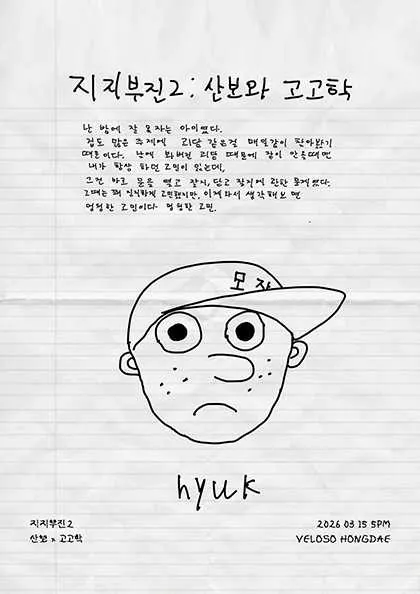 지지부진2: 산보와 고고학
난 밤에 잘 못자는 아이였다.
겁도 많은 주제에 괴담 같은걸 매일같이 찾아봤기
때문이다. 낮에 봐버린 괴담 때문에 잠이 안올때면
내가 항상 하던 고민이 있는데,
그건 바로 문을 열고 잘지, 닫고 잘지에 관한 문제였다.
그때는 꽤 진지하게 고민했지만, 이제와서 생각해보면
멍청한 고민이다 멍청한 고민.
모자
hyuk
지지부진2
산보 x 고고학
2026 03 15 5PM
VELOSO HONGDAE